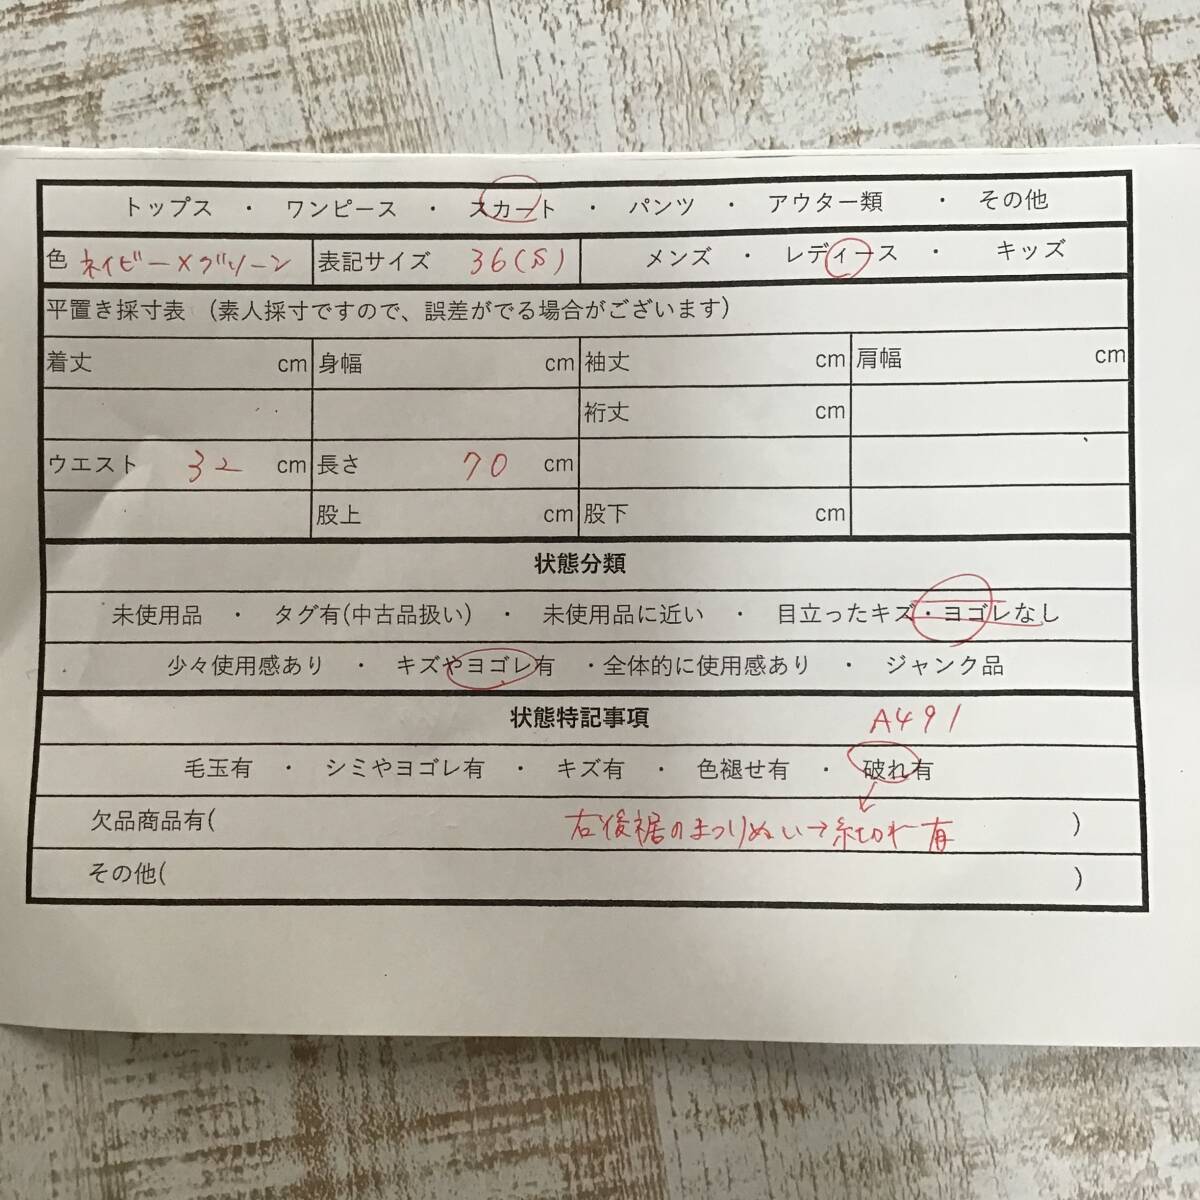 トップス ・ ワンピース ・ スカート ・ パンツ ・ アウター類 ・ その他
色 ネイビー×グリーン 表記サイズ 36(S) メンズ ・ レディース ・ キッズ
平置き採寸表 (素人採寸ですので、誤差がでる場合がございます)
着丈 cm 身幅 cm 袖丈 cm 肩幅 cm
裄丈 cm
ウエスト 32 cm 長さ 70 cm
股上 cm 股下 cm
状態分類
未使用品 ・ タグ有(中古品扱い) ・ 未使用品に近い ・ 目立ったキズ・ヨゴレなし
少々使用感あり ・ キズやヨゴレ有 ・全体的に使用感あり ・ ジャンク品
状態特記事項 A491
毛玉有 ・ シミやヨゴレ有 ・ キズ有 ・ 色褪せ有 ・ 破れ有
欠品商品有( 右後裾のまつりぬい→糸切れ有 )
その他( )